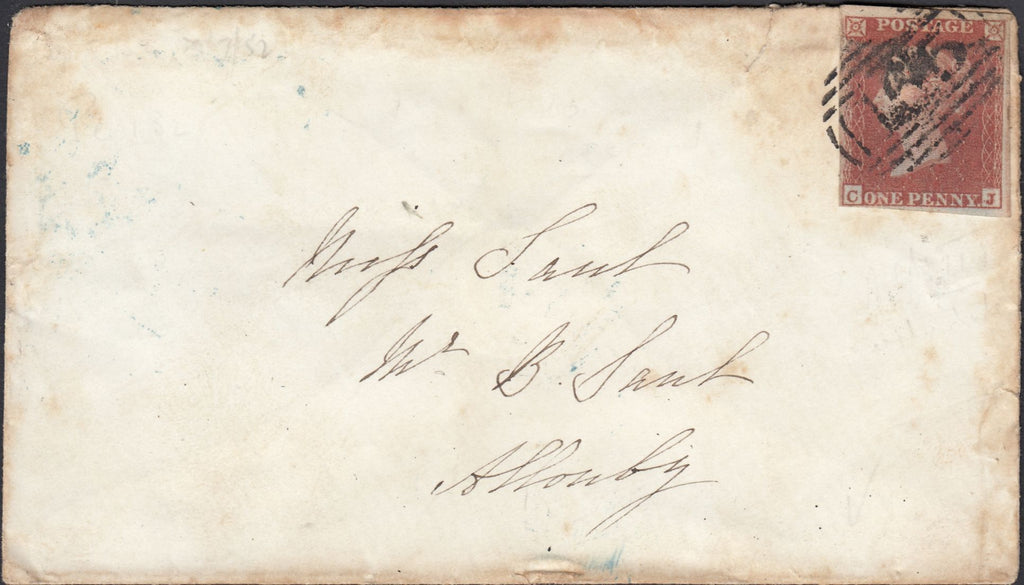 POSTAGE
C ONE PENNY. J
Miss Saul
Mr B. Saul
Allonby